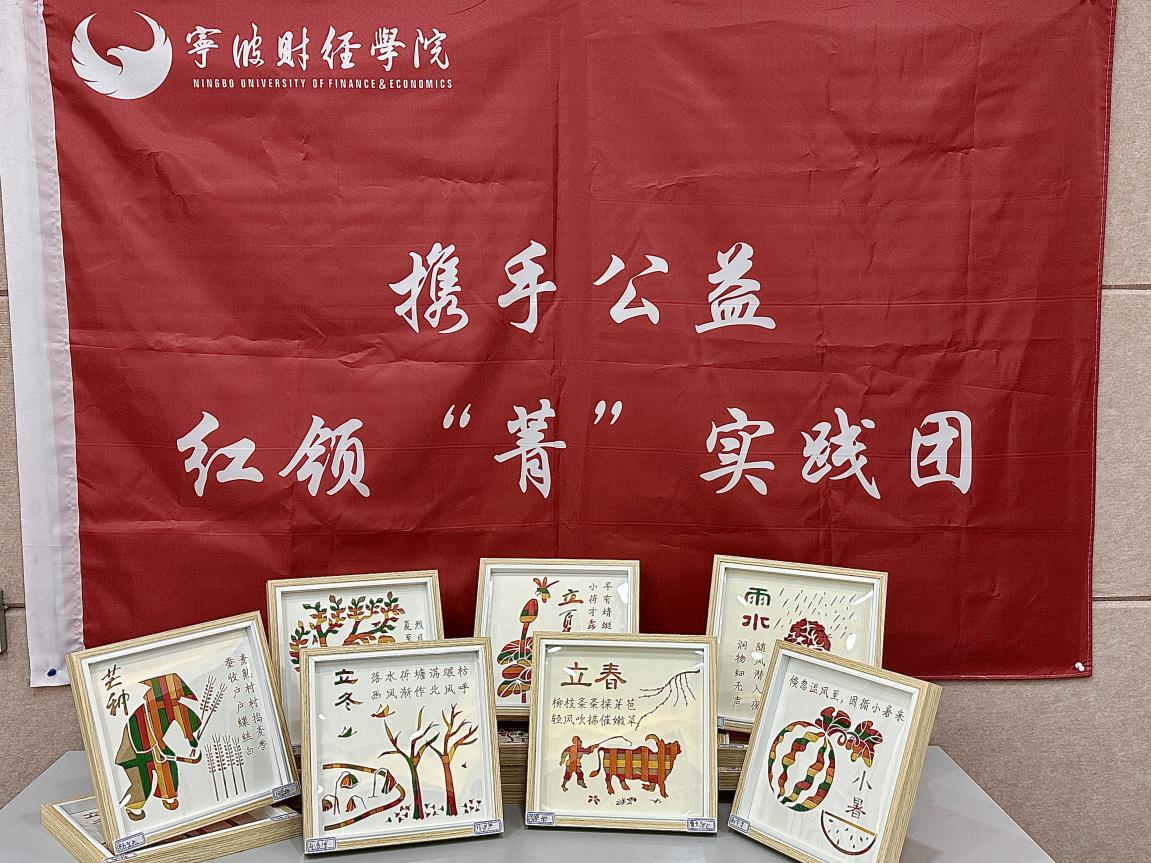 寧波财经學院
NINGBO UNIVERSITY OF FINANCE & ECONOMICS
携手公益
红领“菁”实践团
烈日
夏至
立夏
早有蜻蜓
小荷才露
雨水
随风潜入夜
润物细无声
芒种
麦朝村村捣麦香
蚕收户户缫丝白
立冬
落水荷塘满眼枯
西风渐作北风呼
立春
柳枝条条探芽苞
轻风吹拂催嫩草
倏忽温风至，因循小暑来
小暑